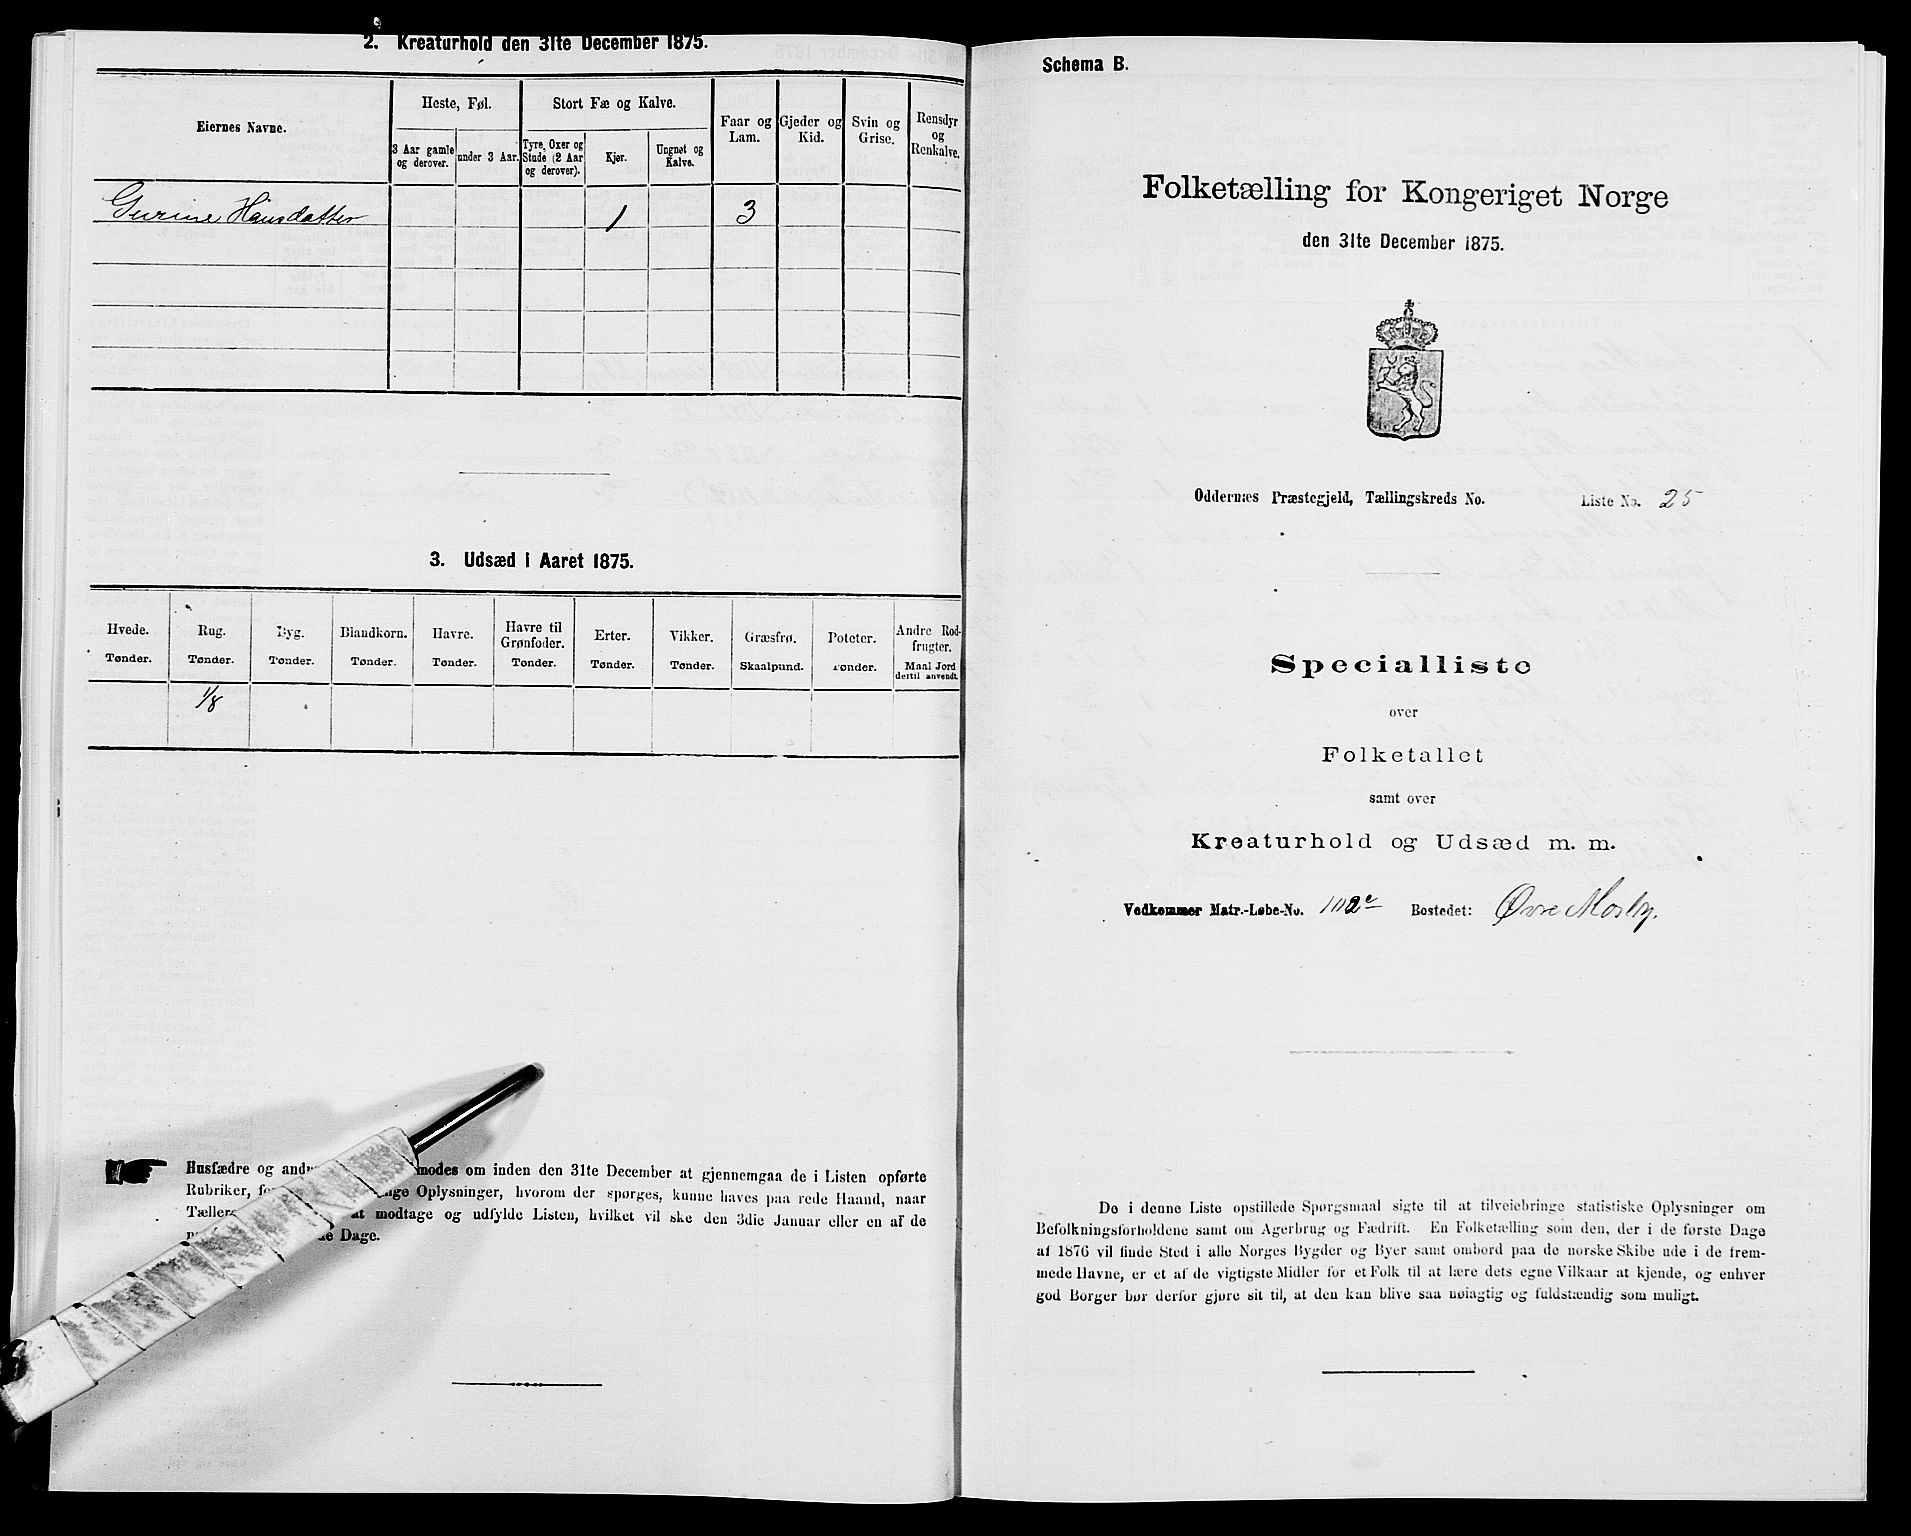 2. Kreaturhold den 31te December 1875.
Eiernes Navne.
Heste, Føl.
Stort Fæ og Kalve.
Faar og Lam.
Gjeder og Kid.
Svin og Grise.
Rensdyr og Renkalve.
3 Aar gamle og derover.
under 3 Aar.
Tyre, Oxer og Stude (2 Aar og derover).
Kjør.
Ungnøt og Kalve.
Gurine Hansdatter 1 3
3. Udsæd i Aaret 1875.
Hvede. Tønder.
Rug. Tønder.
Byg. Tønder.
Blandkorn. Tønder.
Havre. Tønder.
Havre til Grønfoder. Tønder.
Erter. Tønder.
Vikker. Tønder.
Græsfrø. Skaalpund.
Poteter. Tønder.
Andre Rodfrugter. Maal Jord dertil anvendt.
1/8
Husfædre og andre modes om inden den 31te December at gjennemgaa de i Listen opførte
Rubriker, Oplysninger, hvorom der spørges, kunne haves paa rede Haand, naar
Tælleren at modtage og udfylde Listen, hvilket vil ske den 3die Januar eller en af de
Dage.
Schema B.
Folketælling for Kongeriget Norge
den 31te December 1875.
Oddernæs Præstegjeld, Tællingskreds No. Liste No. 25
Specialliste
over
Folketallet
samt over
Kreaturhold og Udsæd m. m.
Vedkommer Matr.-Løbe-No. 112e Bostedet: Øvre Mosby.
De i denne Liste opstillede Spørgsmaal sigte til at tilveiebringe statistiske Oplysninger om
Befolkningsforholdene samt om Agerbrug og Fædrift. En Folketælling som den, der i de første Dage
af 1876 vil finde Sted i alle Norges Bygder og Byer samt ombord paa de norske Skibe ude i de frem-
mede Havne, er et af de vigtigste Midler for et Folk til at lære dets egne Vilkaar at kjende, og enhver
god Borger bør derfor gjøre sit til, at den kan blive saa nøiagtig og fuldstændig som muligt.